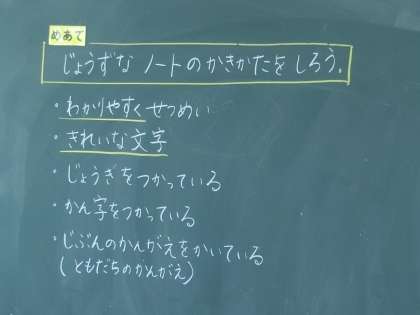 めあて
じょうずな ノートのかきかたをしろう。
・わかりやすくせつめい
・きれいな文字
・じょうぎをつかっている
・かん字をつかっている
・じぶんのかんがえをかいている
(ともだちのかんがえ)